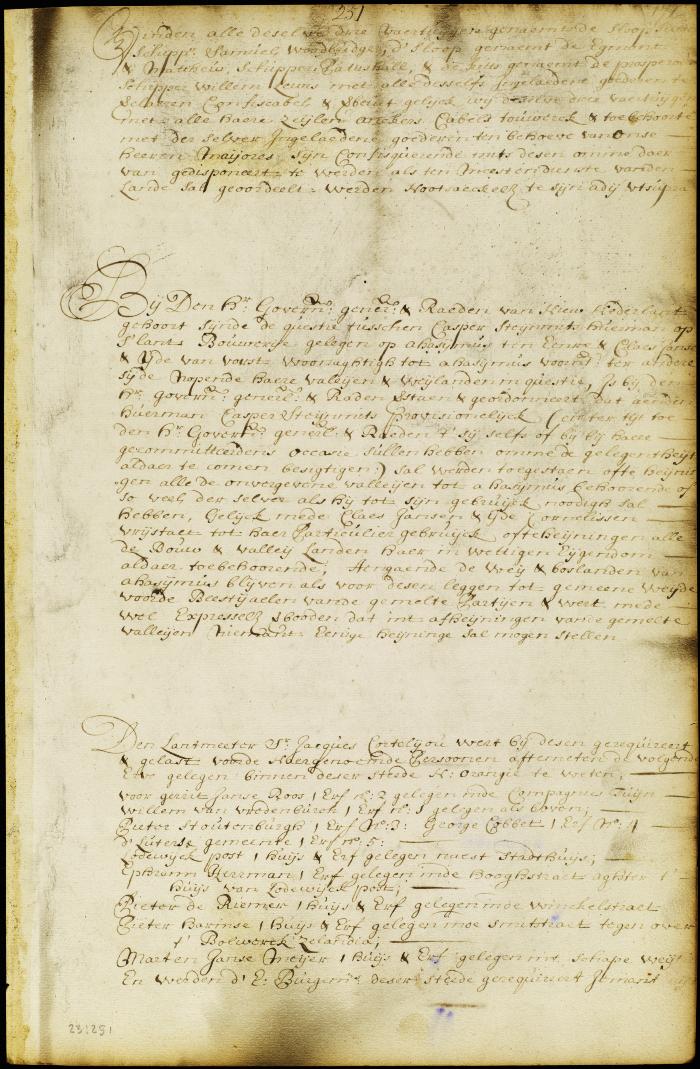 251
Vinden alle deselve drie Vaertuijgen genaemt de Sloop
Schippr. Samuel Woodbridge, d' Sloop genaemt de Egmont
& Mattheus, Schipper Patushall, & de kits genaemt de prosperous
Schipper Willem Leuns met alle desselfs Ingeladene goederen te
Schaven Confiscabel & Sbeut gelijck wij deselve drie vaertuijgen
met alle haere Zeijlen anckers Cabels touwerck & toebehoorte
met der selver Ingelaedene goederen ten behoeve van onse
heeren Maijores sijn Confisquerende mits desen omme daer
van gedisponeert te werden als ten meesten dienste vanden
Lande sal geoordeelt werden Nootsaeckelk te sijn adij utsupra
Bij Den hr. Governr. generl. & Raeden van Nieu Nederlant
gehoort sijnde de questie tusschen Casper Steijnmits huerman op
's lants Bouwerije gelegen op ahasijmus ter Eenre & Claes Janse
& Ide van vorst woonaghtigh tot ahasijmus voornt. ter andere
sijde Nopende haere valeijen & weijlanden in questie, Is bij den
hr. Governr. generl. & Raden Staen & geordonneert dat aenden
huerman Casper Steijnmits Provisionelijck (echter tijt toe
den hr. Governr. generl. & Raeden t' sij selfs of bij haere
gecommitteerdens occasie sullen hebben omme de gelegentheijt
aldaer te comen besigtigen) sal werden toegestaen ofte heijnin
gen alle de onvergevene valleijen tot ahasijmus behoorende of
so veel der selver als hij tot sijn gebruijck noodigh sal
hebben, Gelijck mede Claes Jansen & Ide Cornelissen
vrijstaet tot haer Particulier gebruijck ofte heijningen alle
de Bouw & valleij Landen haer in wettigen Eijgendom
aldaer toebehoorende; Aengaende de weij & boslanden van
ahasijmus blijven als voor desen leggen tot gemeene weijde
voorde Beestijaelen vande gemelte Partijen & wert mede
wel Expresselk Sbooden dat int afheijningen vande gemelte
valleijen Niemant Eenige heijninge sal mogen stellen
Den Lantmeeter Sr. Jacques Cortelijou wert bij desen gerequireert
& gelast voorde Naergenoemde Persoonen afftemeten de volgende
Erve gelegen binnen deser stede N: Orangie te weten;
voor gerrit Janse Roos 1 Erf no: 2 gelegen inde Compagnies Tuijn
Willem van vredenburch 1 Erf no: 1 gelegen als boven;
Pieter Stoutenburgh 1 Erf No: 3: George Cobbet 1 Erf No: 4
d' Luterse gemeente 1 Erf no: 5:
Lodewijck post 1 huijs & Erf gelegen naest Stadthuijs;
Ephraim Herrman 1 Erf gelegen inde hooghstraet aghter t'
huijs van Lodewijck post;
Pieter de Riemer 1 huijs & Erf gelegen inde Winckelstraet
Pieter Harmse 1 huijs & Erf gelegen inde Smitstraet tegen over
t' Bolwerck Zelandia;
Marten Janse Meijer 1 huijs & Erf gelegen int Schape Weijt
En werden d' E: Burgemrs. deser stede gerequireert Jemant
23:251